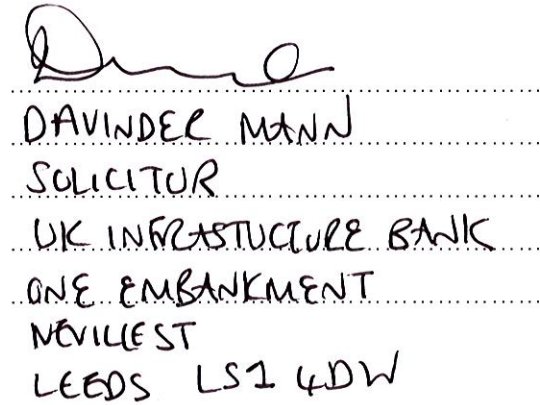 DAVINDER MANN
SOLICITOR
UK INFRASTUCTURE BANK
ONE EMBANKMENT
NEVILLE ST
LEEDS LS1 4DW